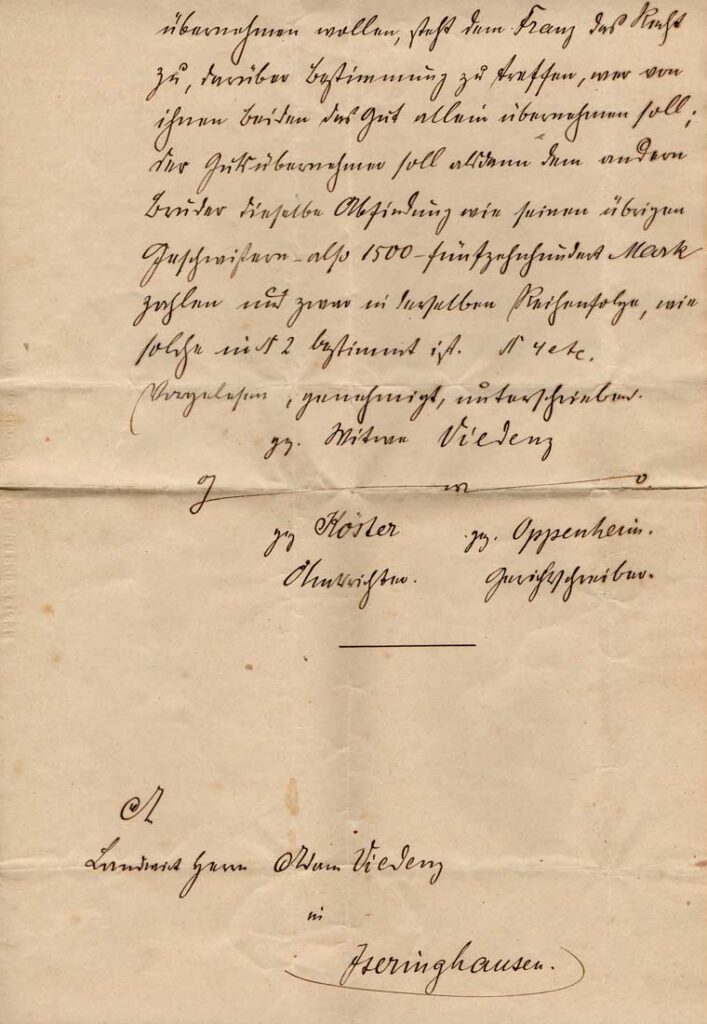 übernehmen wollen, steht dem Franz das Recht
zu, darüber Bestimmung zu treffen, wer von
ihnen beiden das Gut allein übernehmen soll;
der Gutsübernehmer soll alsdann dem andern
Bruder dieselbe Abfindung wie seinen übrigen
Geschwistern - also 1500 - fünfzehnhundert Mark
zahlen und zwar in derselben Reihenfolge, wie
solche in N 2 bestimmt ist. N 4 etc.
Vorgelesen, genehmigt, unterschrieben.
gz. Witwe Viedenz
g. w. o.
gz Köster gz. Oppenheim.
Amtsrichter. Gerichtschreiber.
Landwirt Herrn Adam Viedenz
in
Iseringhausen.